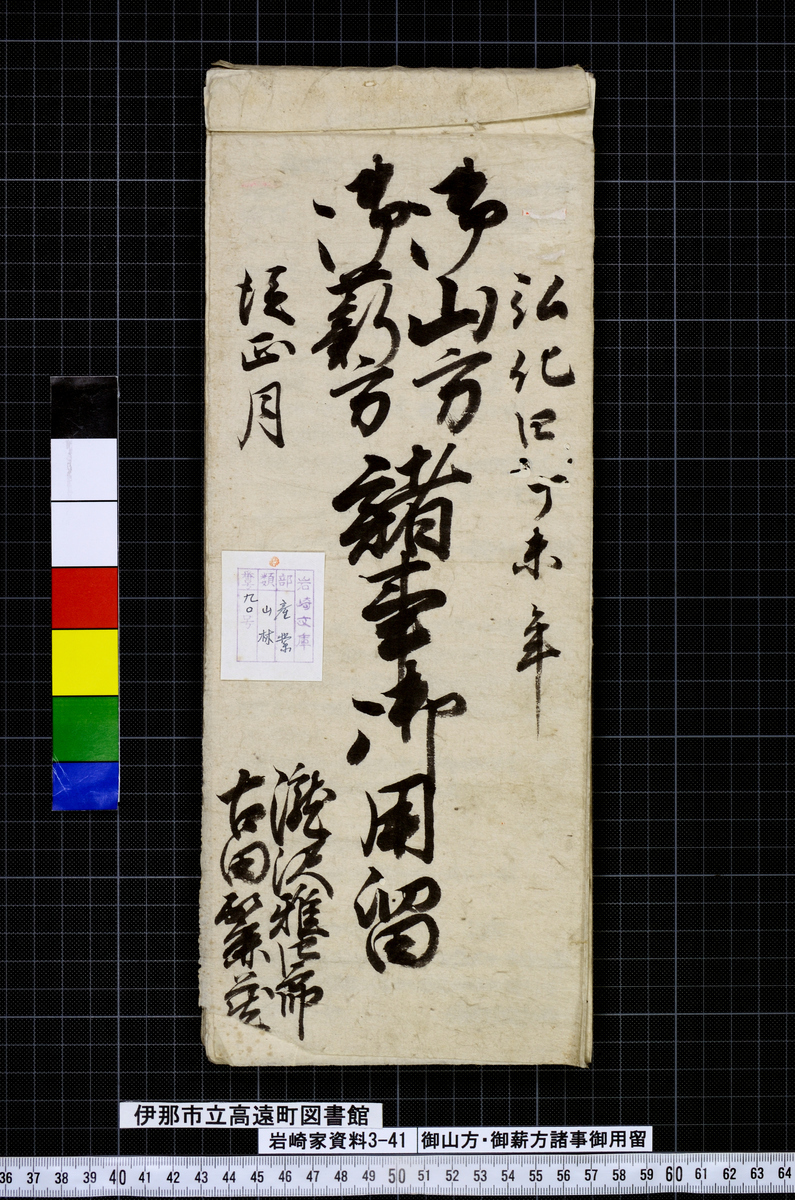 弘化四丁未年
御山方
御薪方
諸事御用留
従正月
瀧沢雅
古田繁蔵
岩崎文庫
部 産業
類 山林
第九〇号
伊那市立高遠町図書館
岩崎家資料3-41 御山方・御薪方諸事御用留
36 37 38 39 40 41 42 43 44 45 46 47 48 49 50 51 52 53 54 55 56 57 58 59 60 61 62 63 64